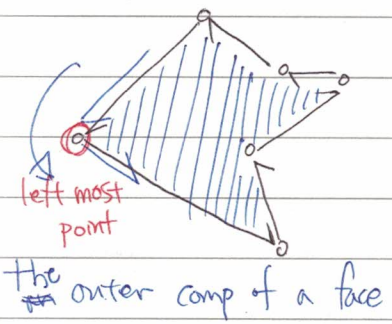 left most
point
the outer comp of a face